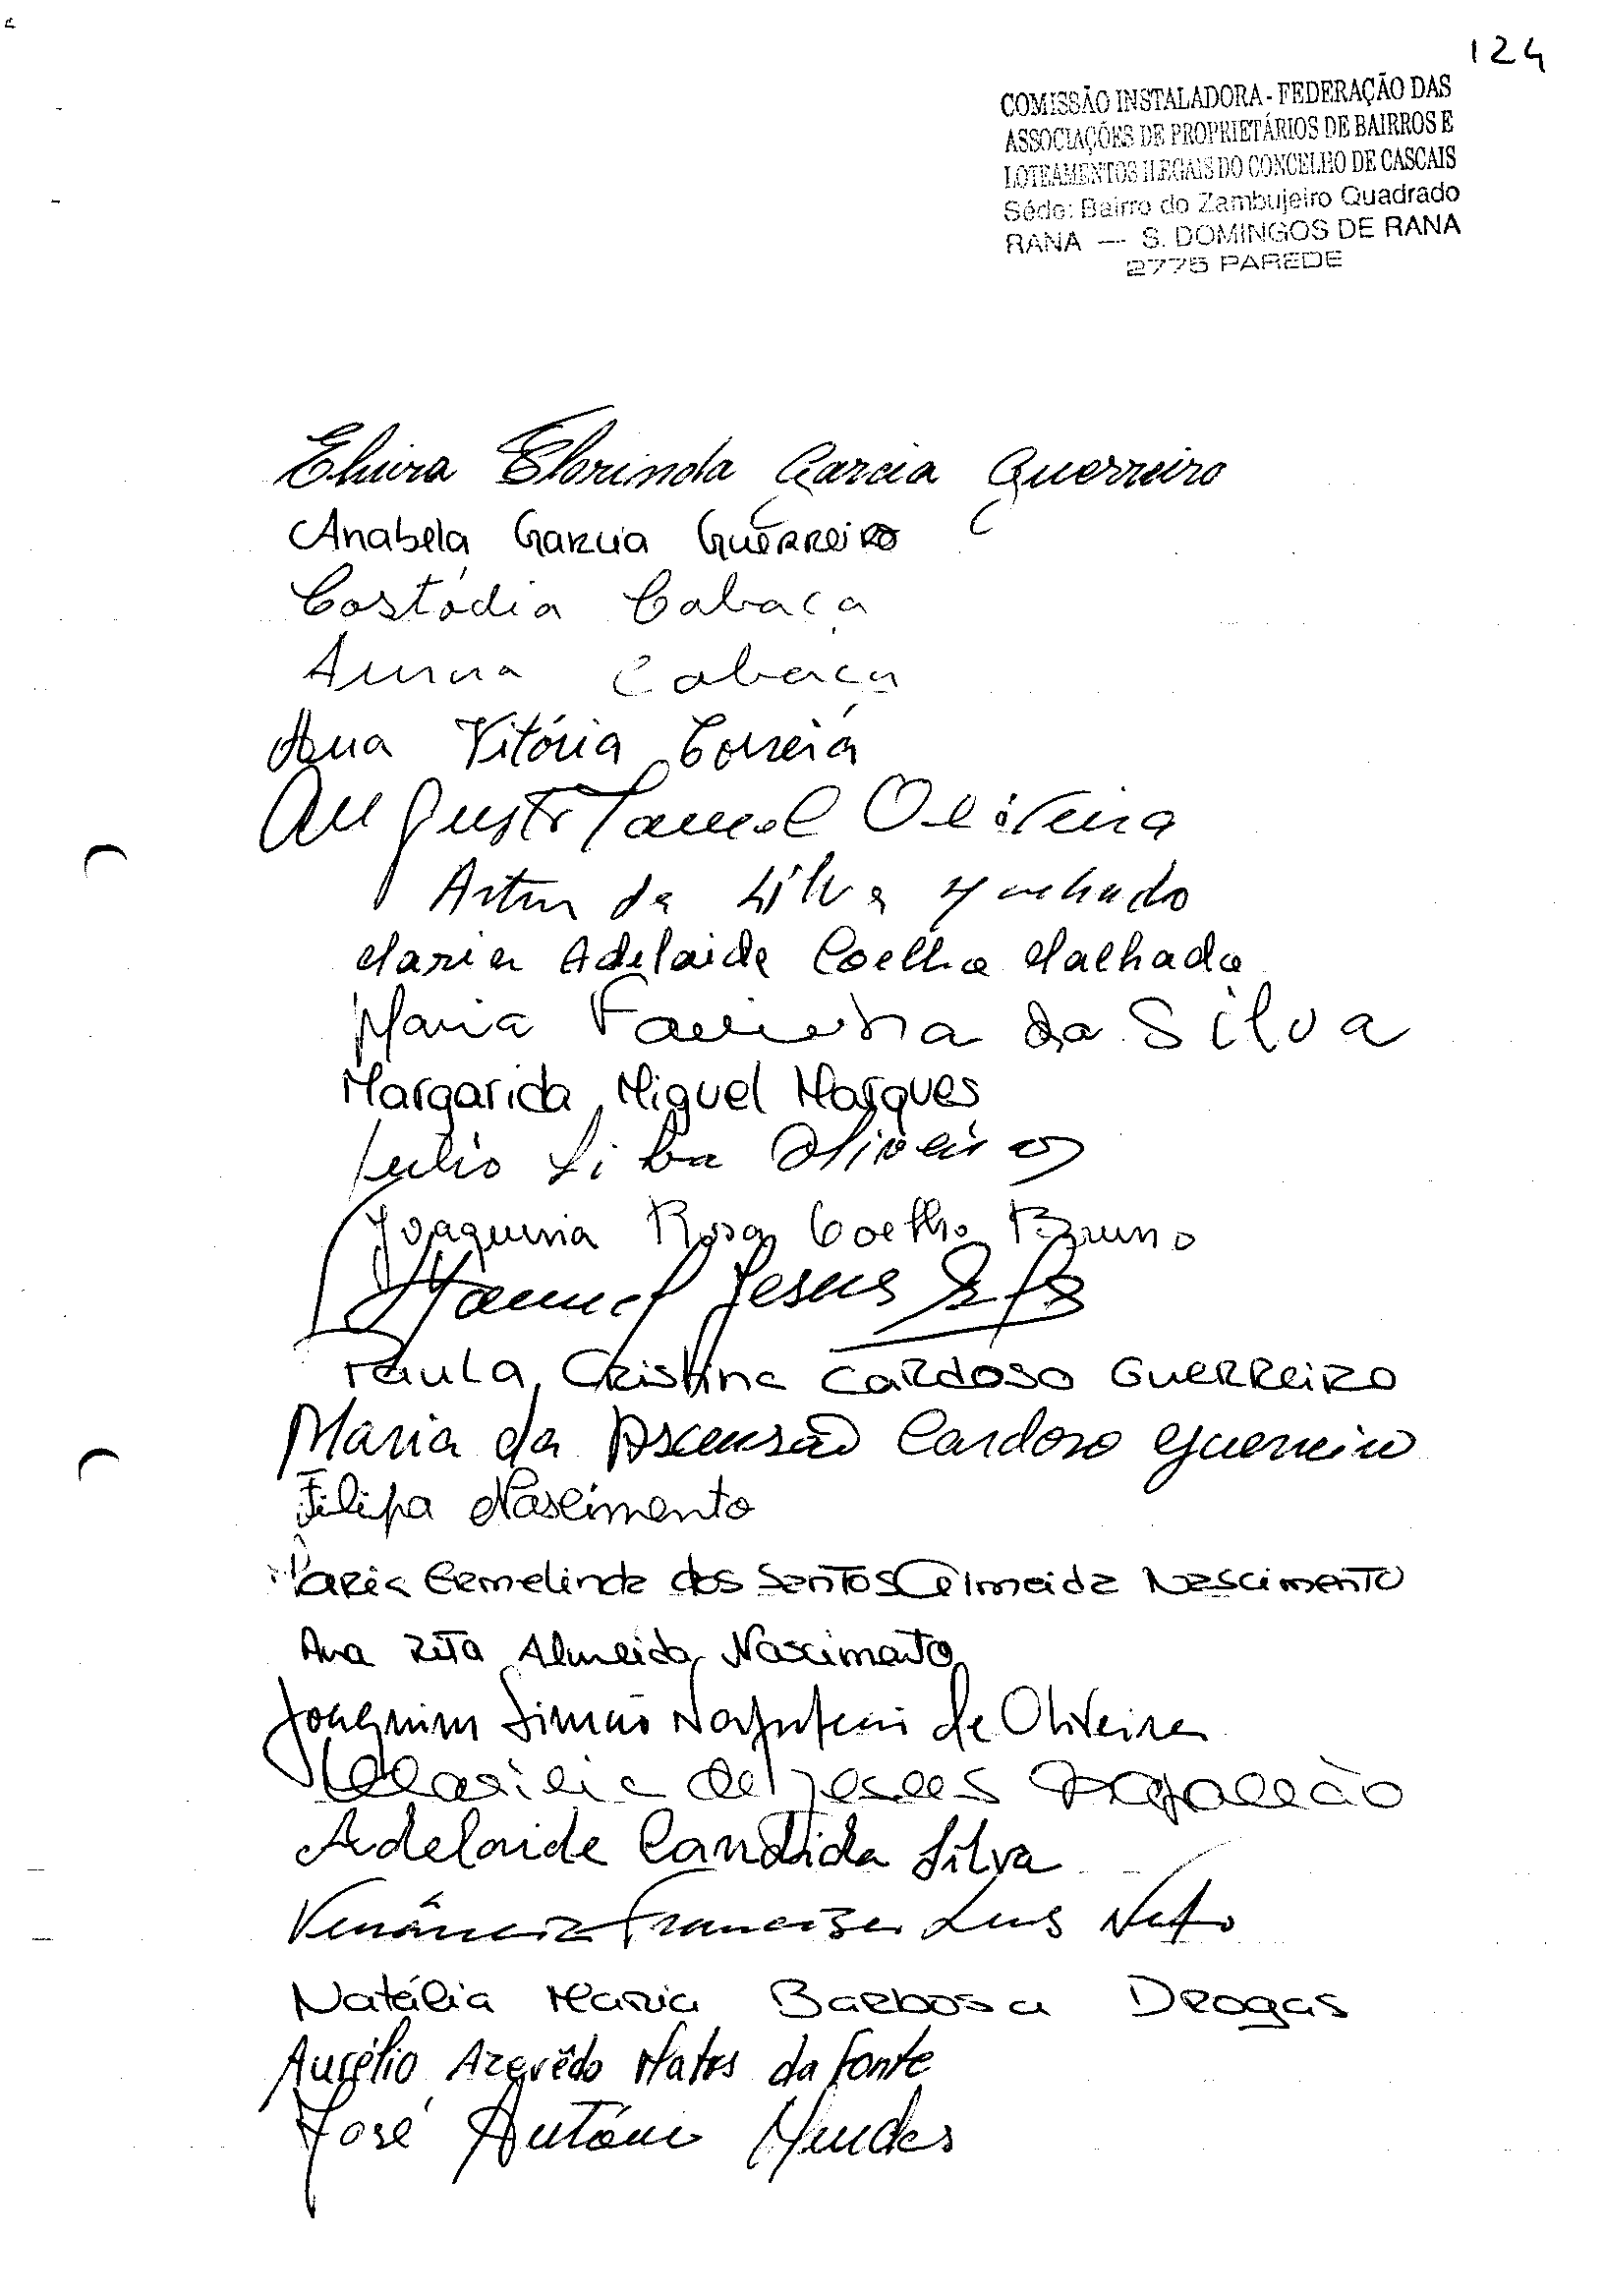 124
COMISSÃO INSTALADORA - FEDERAÇÃO DAS
ASSOCIAÇÕES DE PROPRIETÁRIOS DE BAIRROS E
LOTEAMENTOS ILEGAIS DO CONCELHO DE CASCAIS
Séde: Bairro do Zambujeiro Quadrado
RANA — S. DOMINGOS DE RANA
2775 PAREDE
Elvira Florinda Garcia Guerreiro
Anabela Garcia Guerreiro
Costódia Cabaça
Cabaça
Ana Vitória Correia
Augusto Oliveira
Artur da Silva Machado
Maria Adelaide Coelho Malhada
Maria da Silva
Margarida Miguel Marques
Julio Silva Oliveira
Joaquina Rosa Coelho Bruno
Manuel Jesus
Paula Cristina Cardoso Guerreiro
Maria da Ascensão Cardoso Guerreiro
Filipa Nascimento
Maria Ermelinda dos Santos Almeida Nascimento
Ana Rita Almeida Nascimento
Joaquim Simão de Oliveira
de Jesus
Adelaide Candida Silva
Venância Luis Neto
Natália Maria Barbosa Drogas
Aurélio Azevêdo Matos da Fonte
José António Mendes